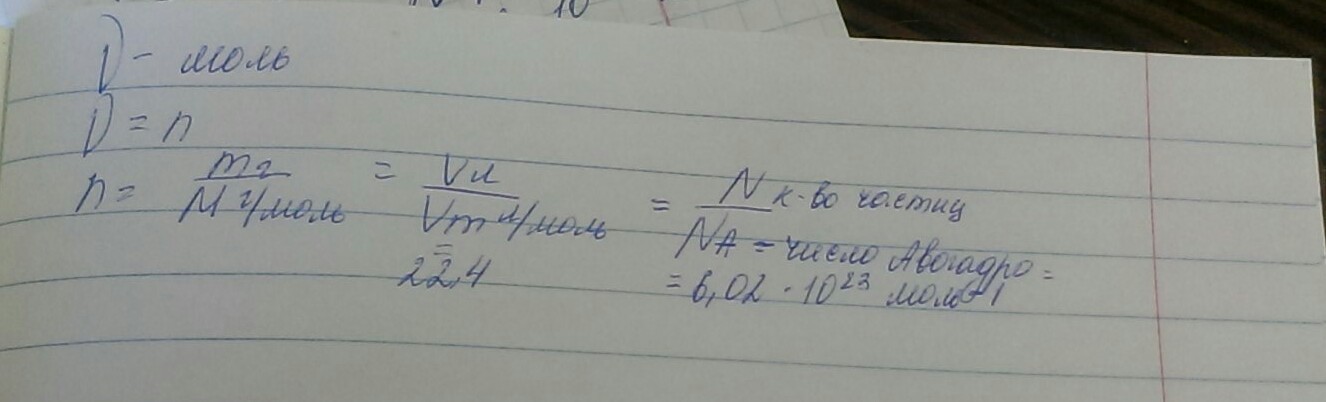 ν - моль
ν = n
n = m г / M г/моль = V л / Vm л/моль = N к-во частиц / NA = число Авогадро =
= 22,4
= 6,02 · 10²³ моль-1